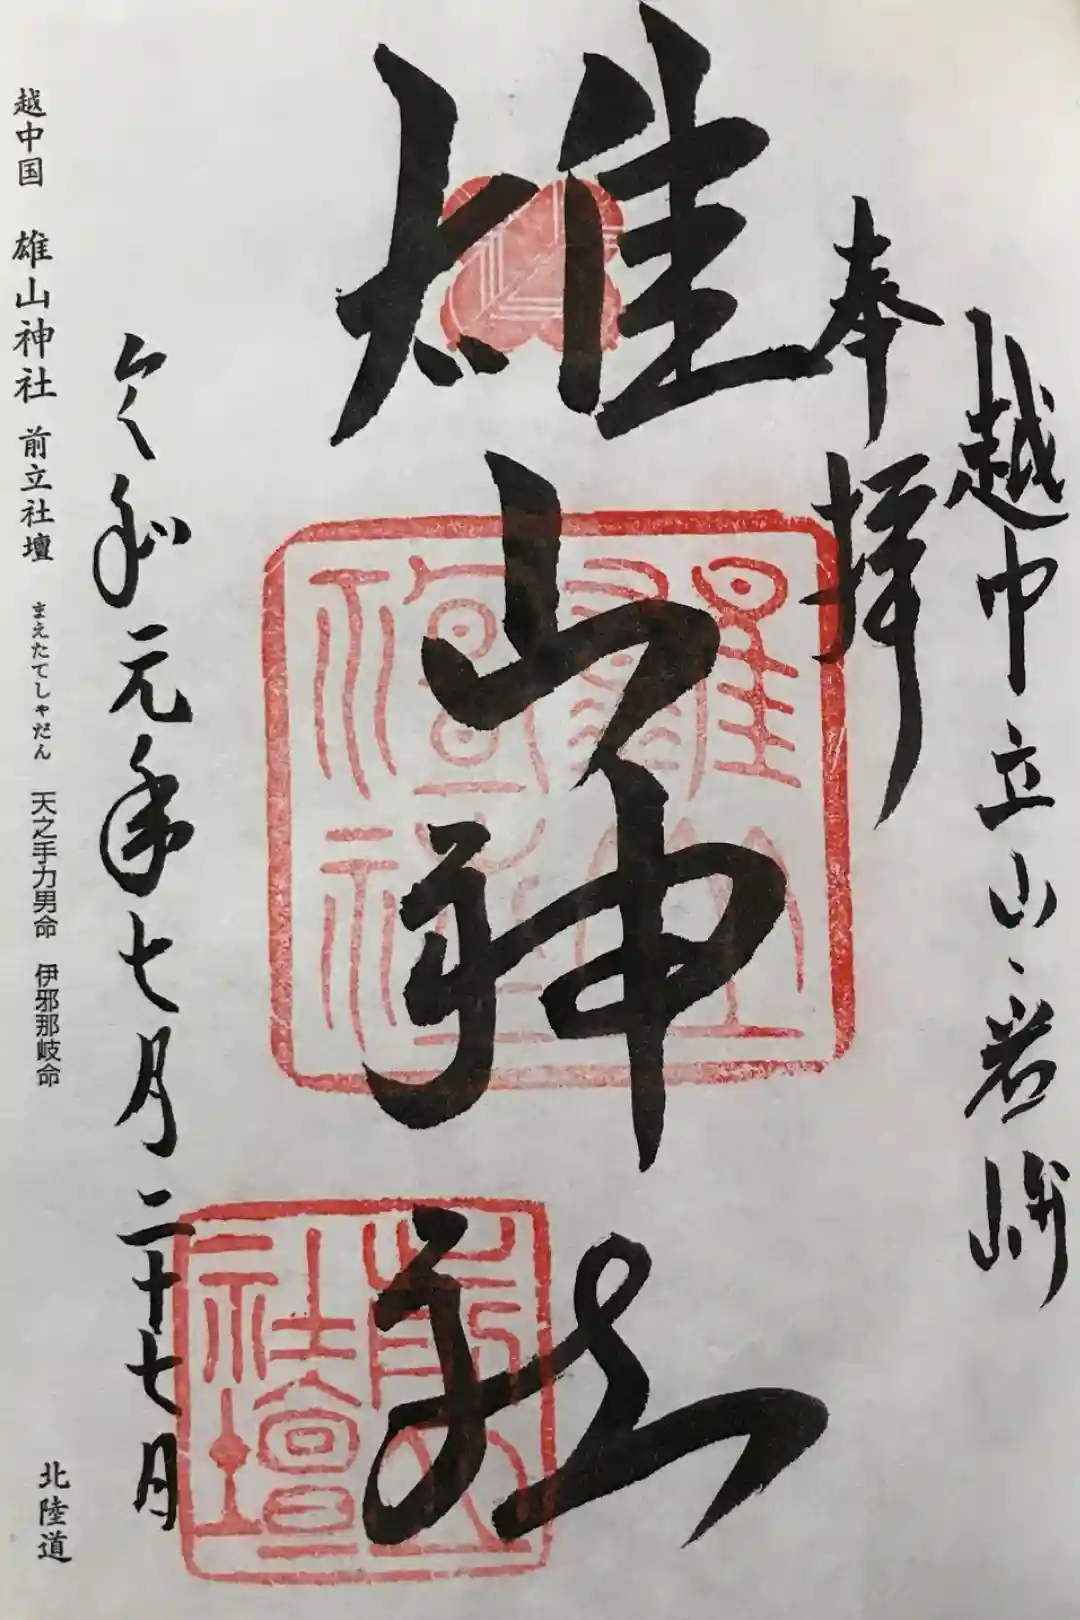 越中立山岩峅
奉拝
雄山神社
雄山神社
前立社壇
令和元年七月二十七日
越中国 雄山神社 前立社壇 まえたてしゃだん 天之手力男命 伊邪那岐命
北陸道